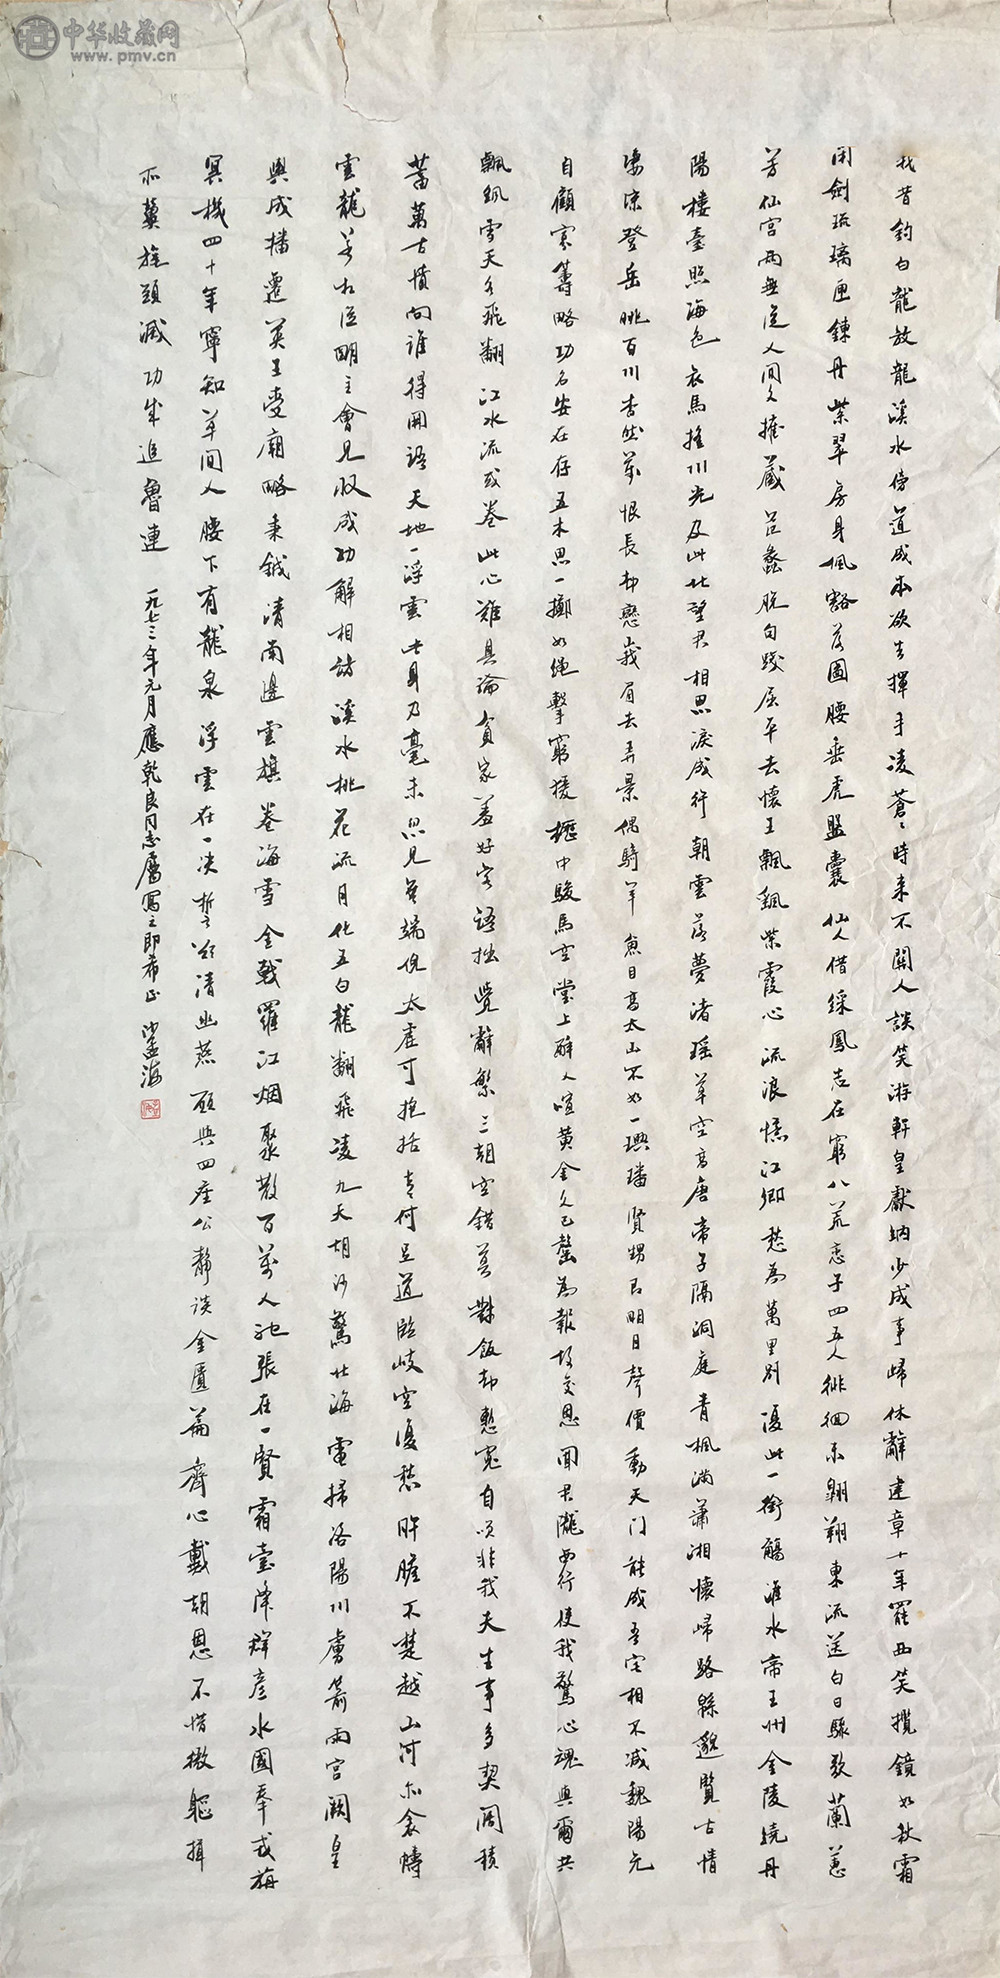 中华收藏网
www.pmv.cn
我昔釣白龍放龍溪水傍道成本欲去揮手凌蒼蒼時来不關人談笑游軒皇獻納少成事歸休辭建章十年罷西笑攬鏡如秋霜
閉劍琉璃匣鍊丹紫翠房身佩豁落圖腰垂虎盤囊仙人借綵鳳志在窮八荒恋子四五人徘徊未翱翔東流送白日驟歌蘭蕙
芳仙宫兩無從人間久摧藏范蠡脱句踐屈平去懷王飄飄紫霞心流浪憶江鄉愁為萬里别復此一銜觴淮水帝王州金陵繞丹
陽樓臺照海色衣馬摇川光及此北望君相思淚成行朝雲落夢渚瑶草空高唐帝子隔洞庭青楓满瀟湘懷歸路緜邈覽古情
凄凉登岳眺百川杳然萬恨長却戀峩眉去弄景偶騎羊魚目高太山不如一璵璠賢甥即明月聲價動天门能成吾宅相不减魏陽元
自顧寡籌略功名安在存五木思一擲如绳擊窮猨櫪中駿馬空堂上醉人喧黄金久已罄為報故交恩聞君隴西行使我驚心魂與爾共
飄飖雪天各飛翻江水流或卷此心難具論貧家羞好客語拙覺辭繁三朝空錯莫對飯却慙寃自笑非我夫生事多契阔積
蓄萬古憤向誰得開語天地一浮雲此身乃毫末忽見無端倪太虚可抱括去何足道臨岐空復愁肝膽不楚越山河亦衾幬
雲龍若相從明主會見收成功解相訪溪水桃花流月化五白龍翻飛凌九天胡沙驚北海電掃洛陽川虜箭雨宫闕皇
輿成播遷英王受廟略秉鉞清南邊雲旗卷海雪金戟羅江烟聚散百萬人弛張在一賢霜臺降群彦水國奉戎旃
冥機四十年寧知草間人腰下有龍泉浮雲在一决誓欲清幽燕願與四座公靜談金匱篇齊心戴朝恩不惜微軀捐
所冀旄頭滅功成追魯連 一九七三年元月應乾良同志屬寫之即希正 沙孟海